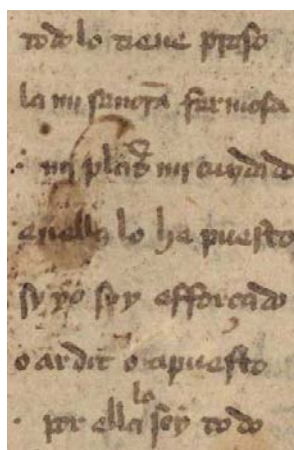 todo lo tiene preso
la mi señora fermosa
mi plaꝫ mi cuydado
en ella lo he puesto
sy yo soy efforçado
o ardit o apuesto
por ella lo soy todo